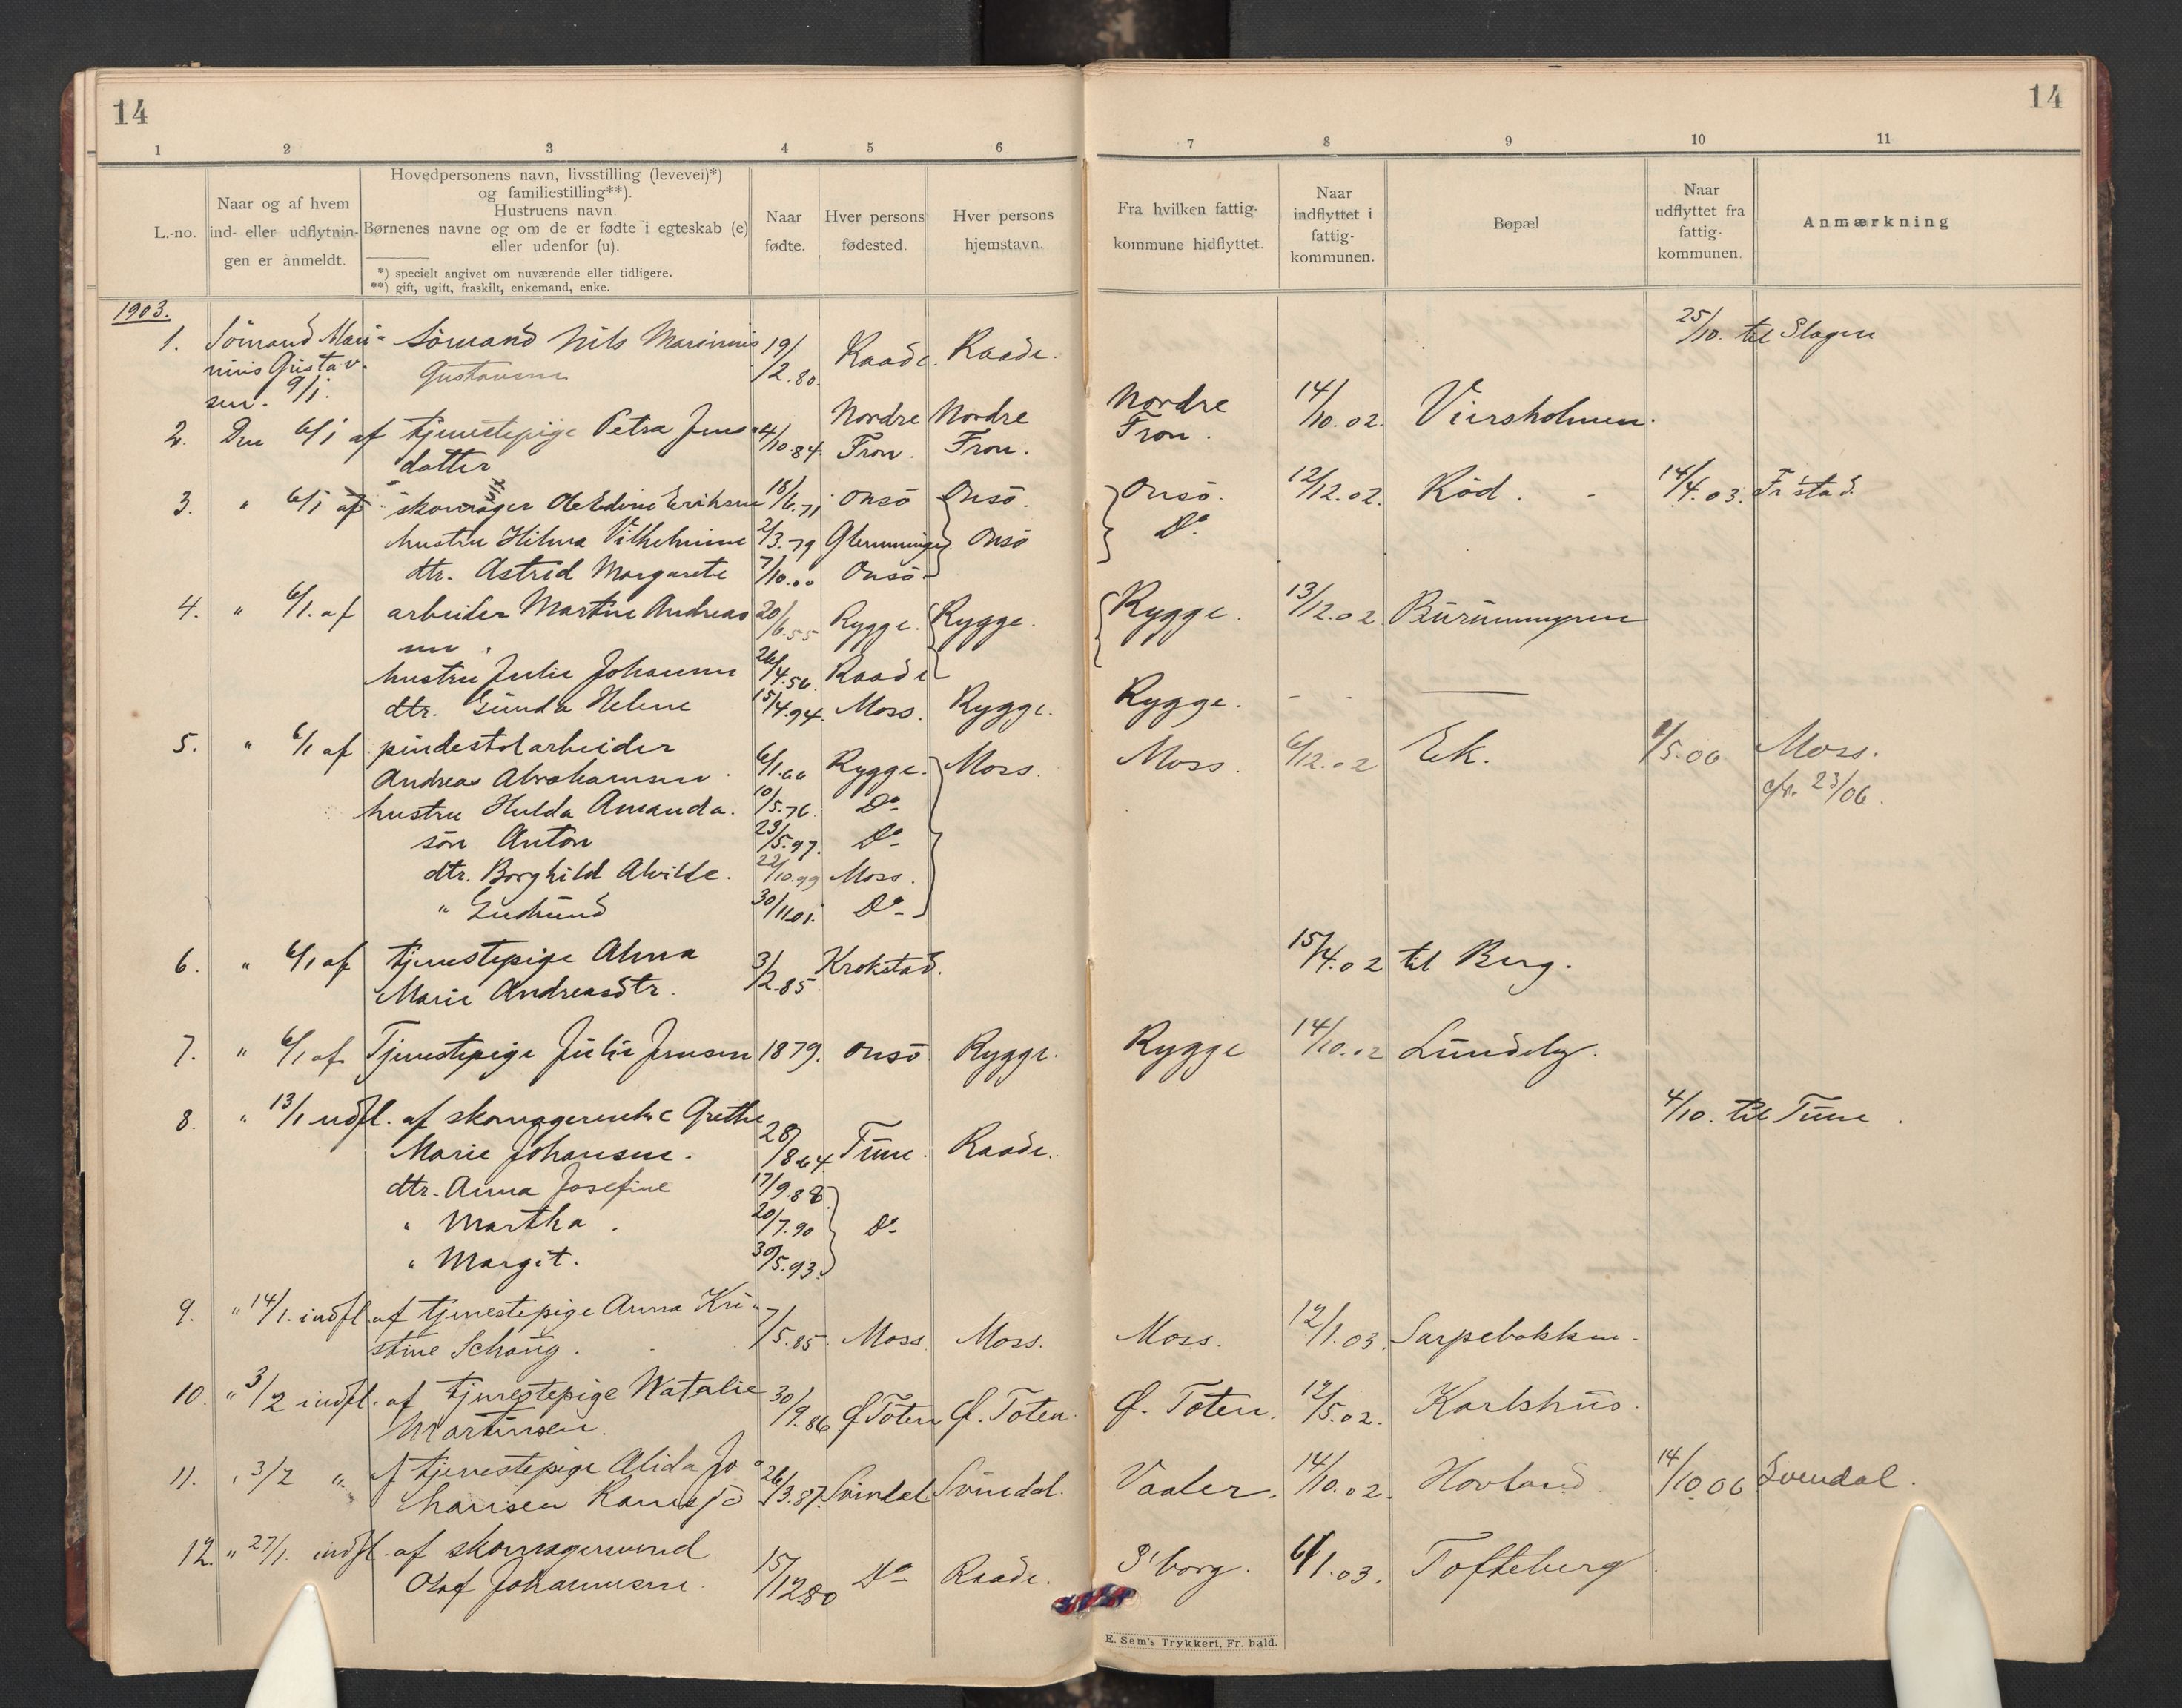 14
14
1 2 3 4 5 6 7 8 9 10 11
L.-no.
Naar og af hvem
ind- eller udflytnin-
gen er anmeldt.
Hovedpersonens navn, livsstilling (levevei)*)
og familiestilling**).
Hustruens navn.
Børnenes navne og om de er fødte i egteskab (e)
eller udenfor (u).
*) specielt angivet om nuværende eller tidligere.
**) gift, ugift, fraskilt, enkemand, enke.
Naar
fødte.
Hver persons
fødested.
Hver persons
hjemstavn.
Fra hvilken fattig-
kommune hidflyttet.
Naar
indflyttet i
fattig-
kommunen.
Bopæl
Naar
udflyttet fra
fattig-
kommunen.
Anmærkning
1903.
1. Sömand Mari- sömand Nils Marinius 19/2.80. Raade. Raade. 25/10. til Slagen
nius Gustav- Gustavsen
sen. 9/1.
2. Den 6/1 af tjenestepige Petra Jens- 4/10.84. Nordre Nordre Nordre 14/10.02. Viersholmen.
datter Fron. Fron. Fron.
3. " 6/1 af skomager Ole Edvin Eriksen 18/6.71 Onsö Onsö. Onsö. 12/12.02. Röd. 14/4.03. Fr'stad.
hustru Hilma Vilhelmine 2/3.79 Glemminge Onsö Do
dtr. Astrid Margarete 7/10.00 Onsö
4. " 6/1. af arbeider Martin Andreas 20/6.55 Rygge. Rygge. Rygge. 13/12.02 Burummyren
sen.
hustru Julie Johanne 26/4.56. Raade
dtr. Gunda Helene 15/4.94. Moss. Rygge. Rygge. - -
5. " 6/1 af pindestolarbeider
Andreas Abrahamsen. Rygge. Moss. Moss. 6/12.02 Ek. /5.06 Moss.
hustru Hulda Amanda. 10/5.76. Do cfr. 23/06.
sön Anton 23/5.97. Do
dtr. Borghild Alvilde. 22/10.99 Moss.
" Gudrund 30/11.01. Do
6. " 6/1 af tjenestepige Alma 3/2.85. Krokstad. 15/4.02 til Berg.
Marie Andreasdtr.
7. " 6/1 af Tjenestepige Julie Jensen 1879. Onsö Rygge. Rygge 14/10.02 Lundeby.
8. " 13/1 udfl. af skomagerenke Grethe 4/10. til Tune.
Marie Johansen. 28/8.64 Tune. Raade.
dtr. Anna Josefine 17/9.88
" Martha. 20/7.90 Do
" Margit. 30/5.93.
9. " 14/1. indfl. af tjenestepige Anna Kri- 7/5.85. Moss. Moss. Moss. 12/1.03. Sarpebakken.
stine Schaug.
10. " 3/2 indfl. af tjenestepige Natalie 30/9.86 Ø. Toten Ø. Toten. Ø. Toten. 12/5.02. Karlshus.
Martinsen.
11. " 3/2 " af tjenestepige Alida Jo- 26/3.87. Svindal Svindal. Vaaler. 14/10.02. Hovland. 14/10.06 Svendal.
hansen Ramsjö
12. " 27/1. indfl. af skomagersvend
Olaf Johannesen. 15/12.80 Do Raade. S'borg. 6/1.03. Tofteberg
E. Sem's Trykkeri, Fr. hald.